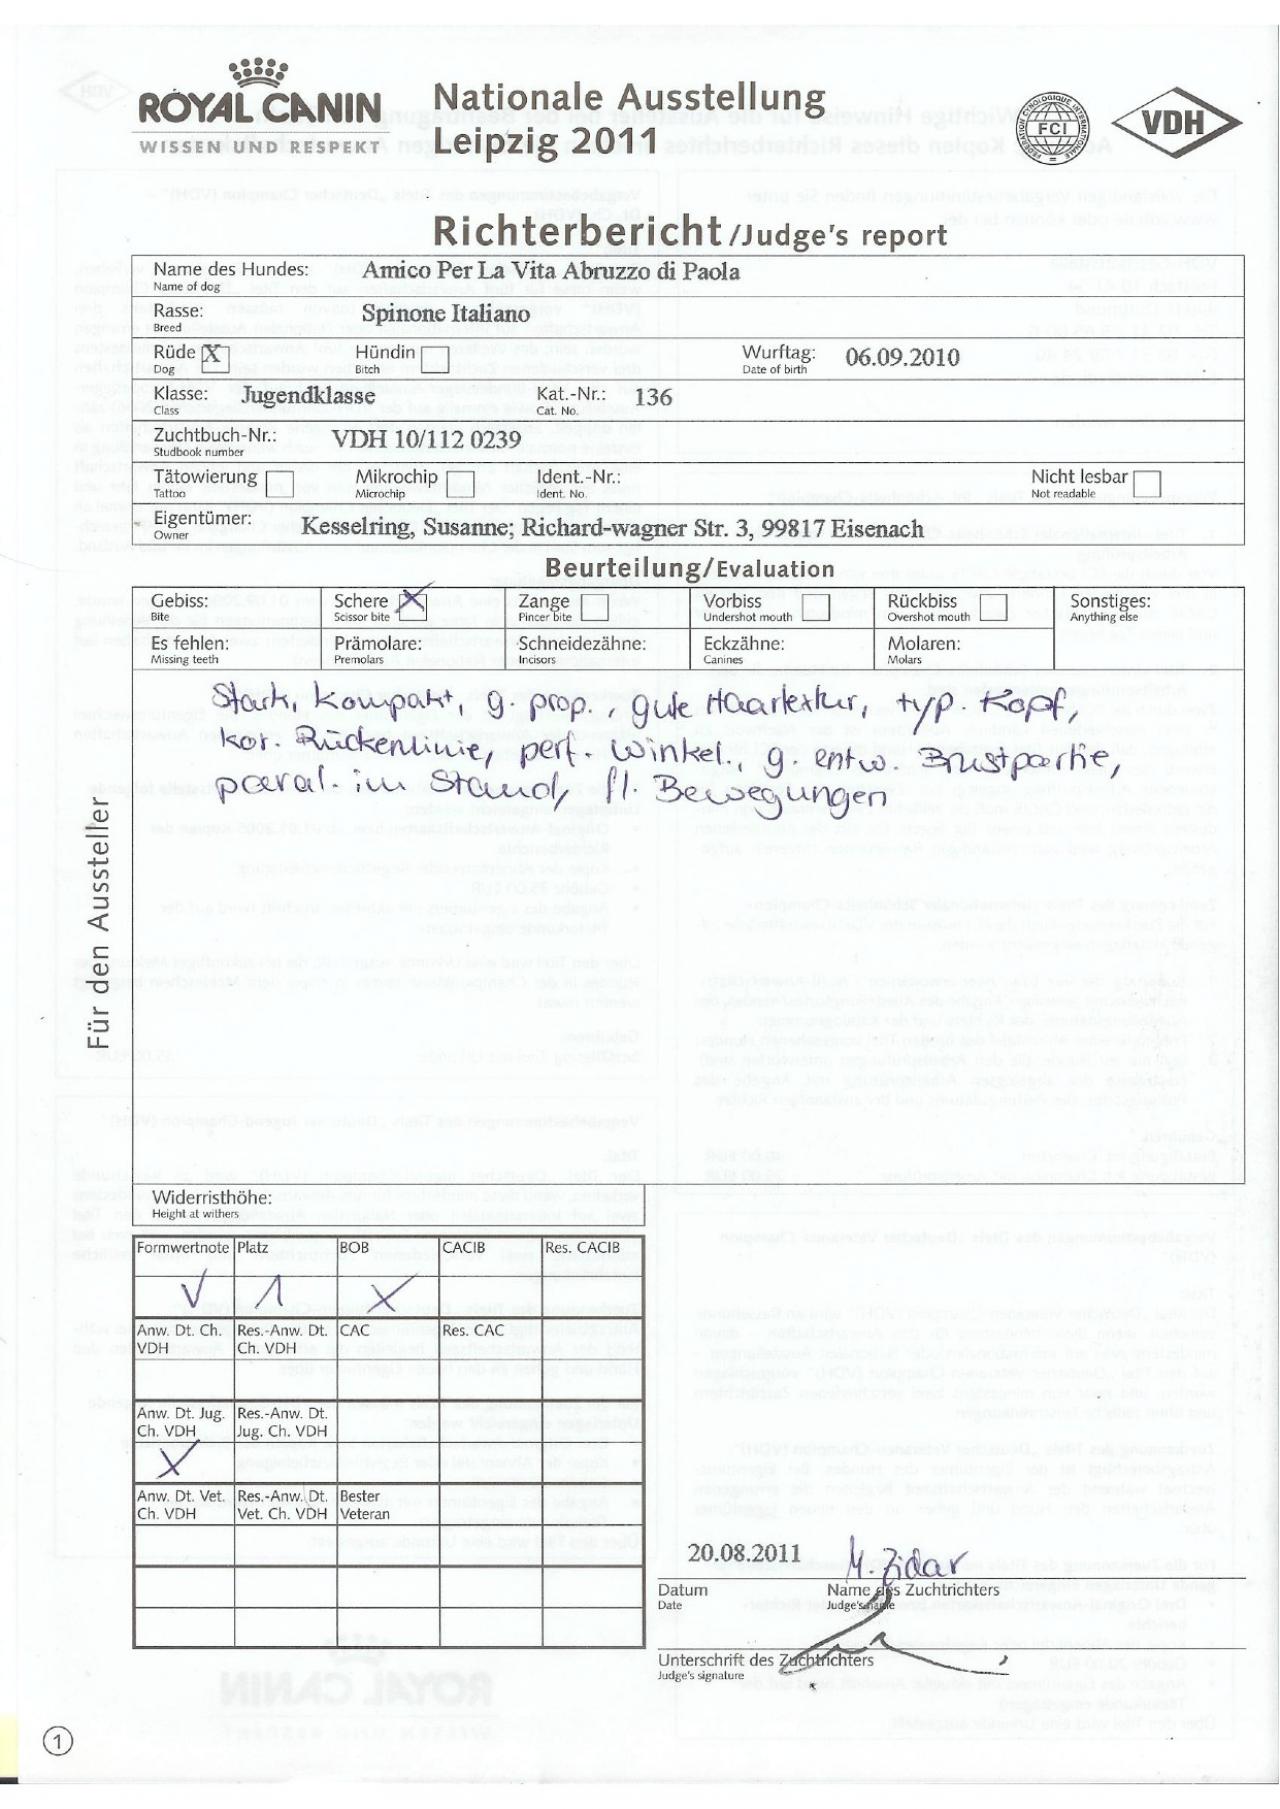 ROYAL CANIN
WISSEN UND RESPEKT
Nationale Ausstellung
Leipzig 2011
FCI
VDH
Richterbericht/Judge's report
Name des Hundes: Amico Per La Vita Abruzzo di Paola
Name of dog
Rasse: Spinone Italiano
Breed
Rüde X Hündin Wurftag: 06.09.2010
Dog Bitch Date of birth
Klasse: Jugendklasse Kat.-Nr.: 136
Class Cat. No.
Zuchtbuch-Nr.: VDH 10/112 0239
Studbook number
Tätowierung Mikrochip Ident.-Nr.: Nicht lesbar
Tattoo Microchip Ident. No. Not readable
Eigentümer: Kesselring, Susanne; Richard-wagner Str. 3, 99817 Eisenach
Owner
Beurteilung/Evaluation
Gebiss: Schere X Zange Vorbiss Rückbiss Sonstiges:
Bite Scissor bite Pincer bite Undershot mouth Overshot mouth Anything else
Es fehlen: Prämolare: Schneidezähne: Eckzähne: Molaren:
Missing teeth Premolars Incisors Canines Molars
Stark, kompakt, g. prop., gute Haartextur, typ. Kopf,
kor. Rückenlinie, perf. Winkel., g. entw. Brustpartie,
paral. im Stand, fl. Bewegungen
Für den Aussteller
Widerristhöhe:
Height at withers
Formwertnote Platz BOB CACIB Res. CACIB
V 1 X
Anw. Dt. Ch. Res.-Anw. Dt. CAC Res. CAC
VDH Ch. VDH
Anw. Dt. Jug. Res.-Anw. Dt.
Ch. VDH Jug. Ch. VDH
X
Anw. Dt. Vet. Res.-Anw. Dt. Bester
Ch. VDH Vet. Ch. VDH Veteran
20.08.2011 M. Zidar
Datum Name des Zuchtrichters
Date Judge's name
Unterschrift des Zuchtrichters
Judge's signature
1